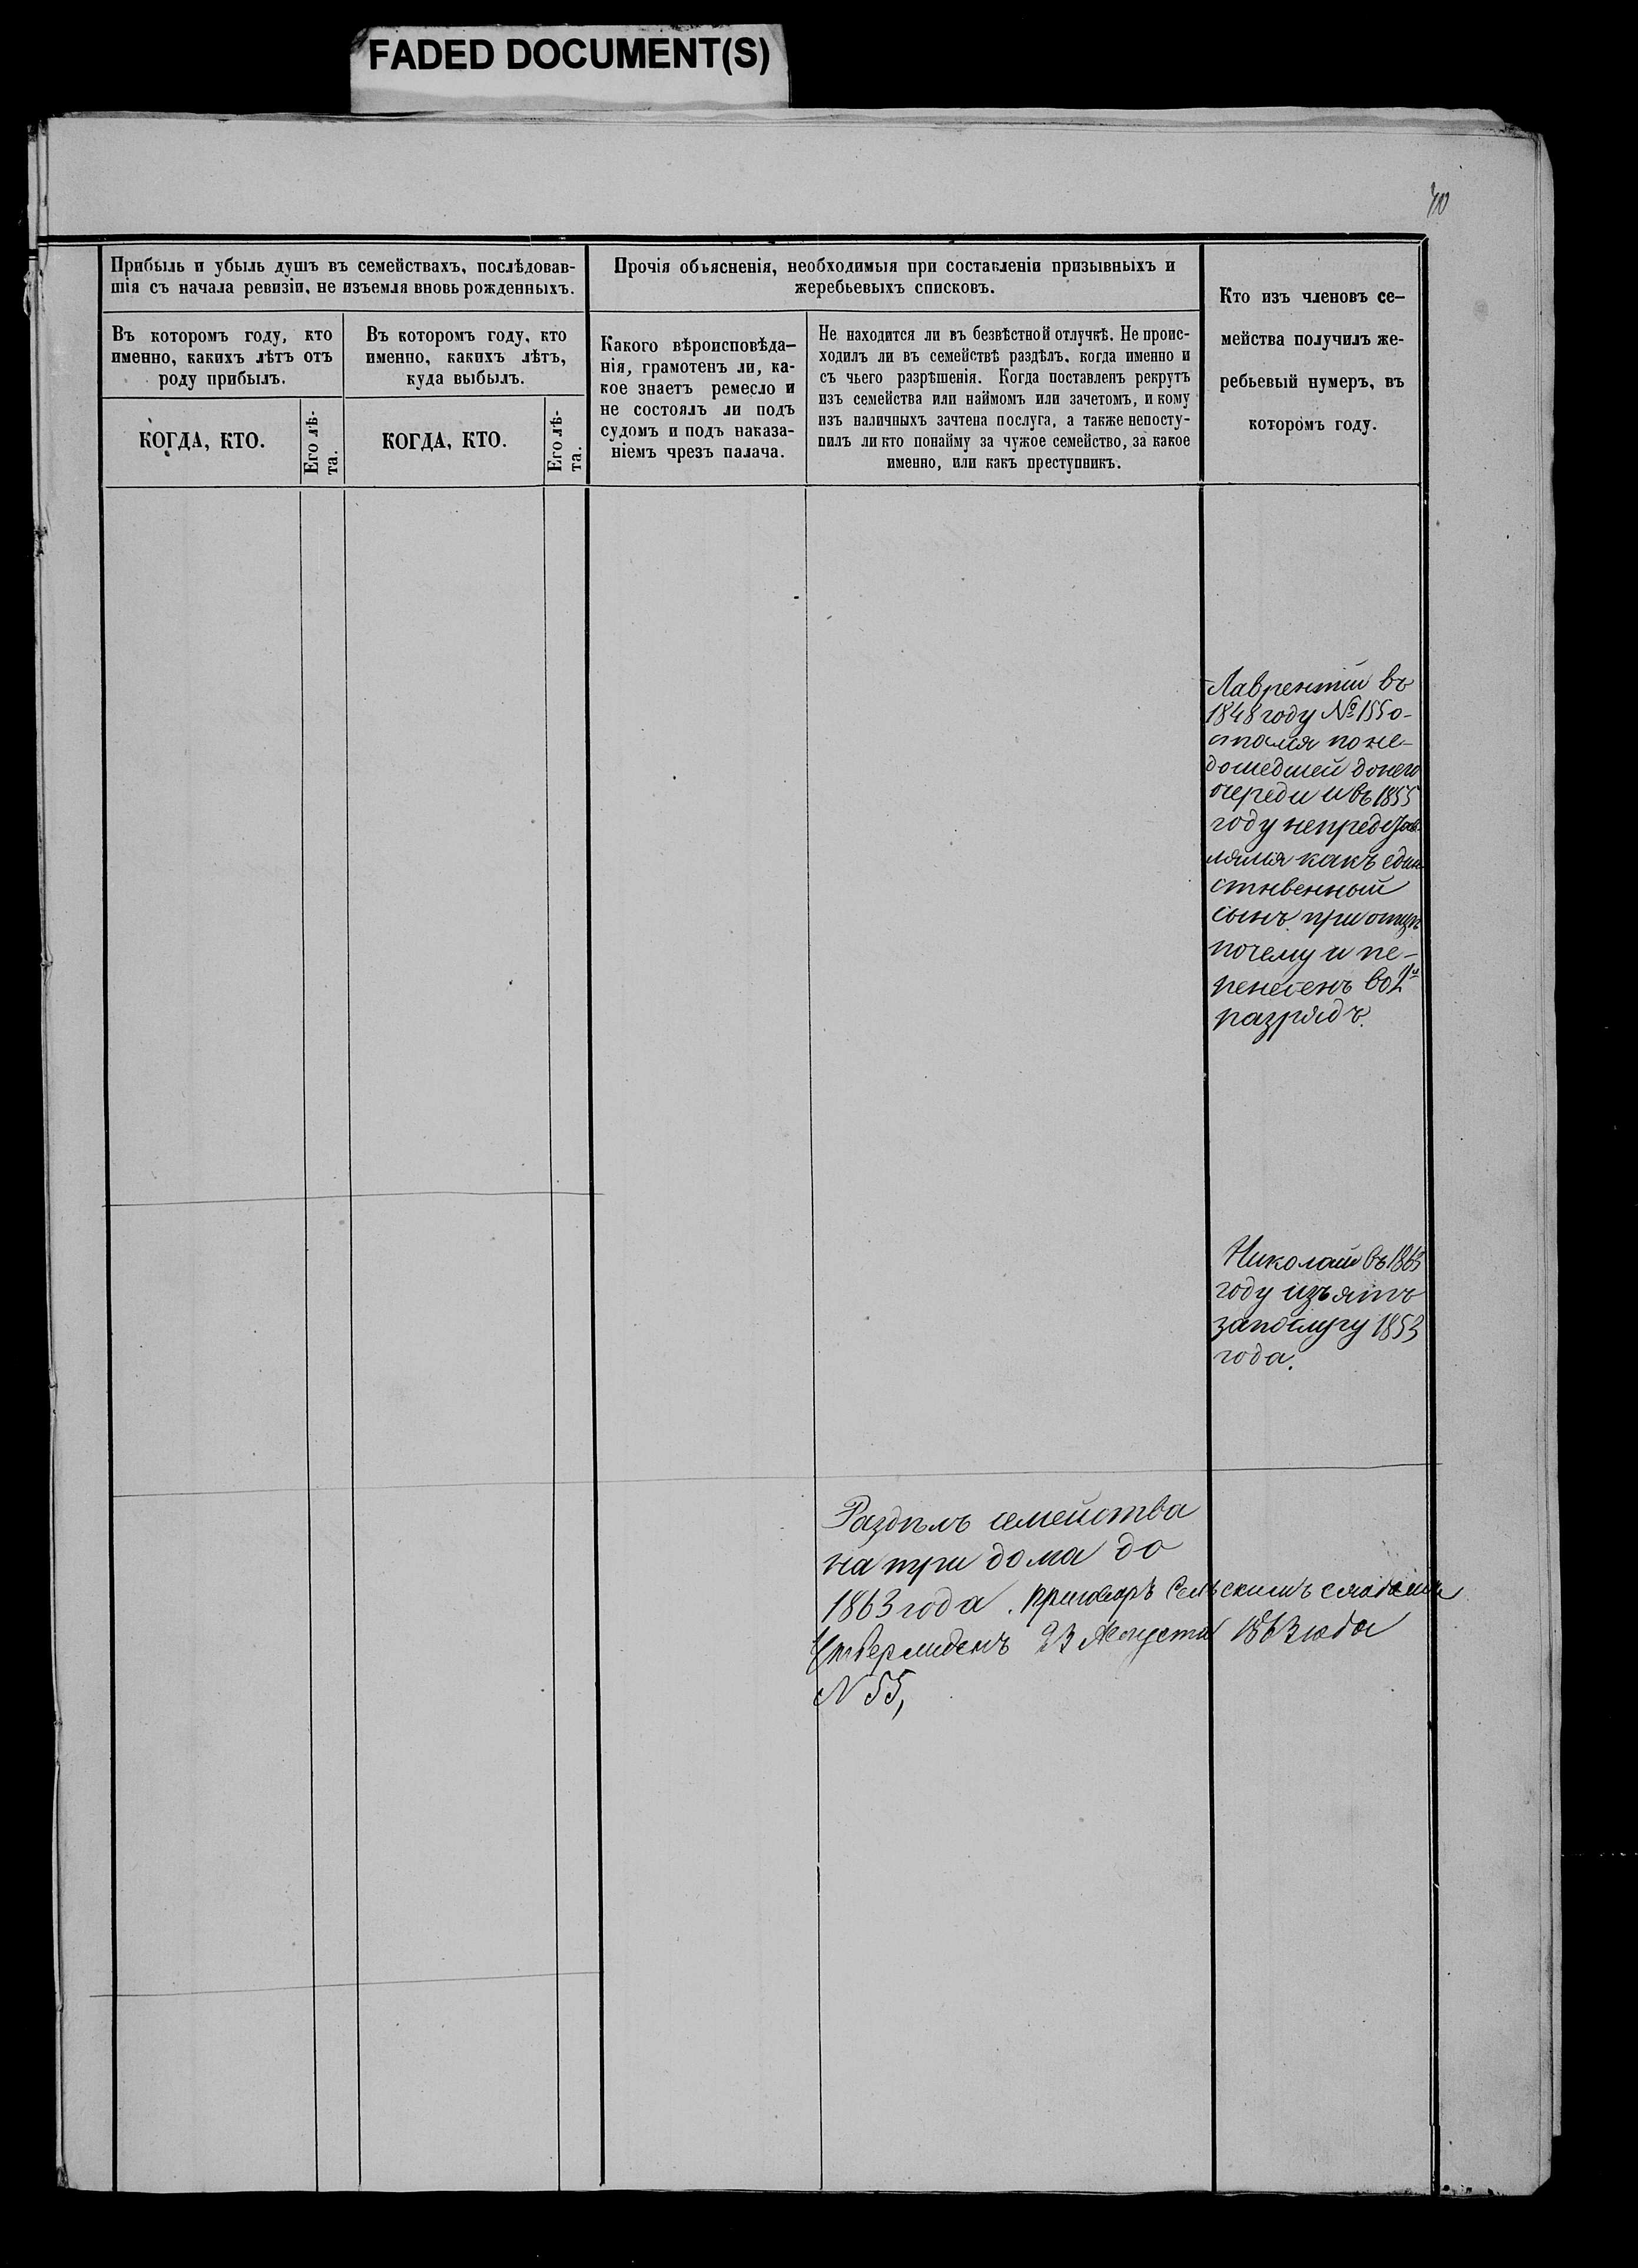 FADED DOCUMENT(S)
Прибыль и убыль душъ въ семействахъ, послѣдовав-
шія съ начала ревизіи, не изъемля вновь рожденныхъ.
Въ которомъ году, кто
именно, какихъ лѣтъ отъ
роду прибылъ.
КОГДА, КТО.
Его лѣ-
та.
Въ которомъ году, кто
именно, какихъ лѣтъ,
куда выбылъ.
КОГДА, КТО.
Его лѣ-
та.
Прочія объясненія, необходимыя при составленіи призывныхъ и
жеребьевыхъ списковъ.
Какого вѣроисповѣда-
нія, грамотенъ ли, ка-
кое знаетъ ремесло и
не состоялъ ли подъ
судомъ и подъ наказа-
ніемъ чрезъ палача.
Не находится ли въ безвѣстной отлучкѣ. Не проис-
ходилъ ли въ семействѣ раздѣлъ, когда именно и
съ чьего разрѣшенія. Когда поставленъ рекрутъ
изъ семейства или наймомъ или зачетомъ, и кому
изъ наличныхъ зачтена послуга, а также непосту-
пилъ ли кто понайму за чужое семейство, за какое
именно, или какъ преступникъ.
Кто изъ членовъ се-
мейства получилъ же-
ребьевый нумеръ, въ
которомъ году.
Лаврентій въ
1848 году № 155 о-
стался по не-
дошедшей до него
очереди и въ 1855
году непредстав-
лялся какъ един
ственный
сынъ при отцѣ
почему и пе-
ренесенъ во 2й
разрядъ.
Николай въ 1863
году изъятъ
за послугу 1853
года.
Раздѣлъ семейства
на три дома до
1863 года. приговоръ Сельскимъ
Утвержденъ 23 Августа 1863 года
N 55,